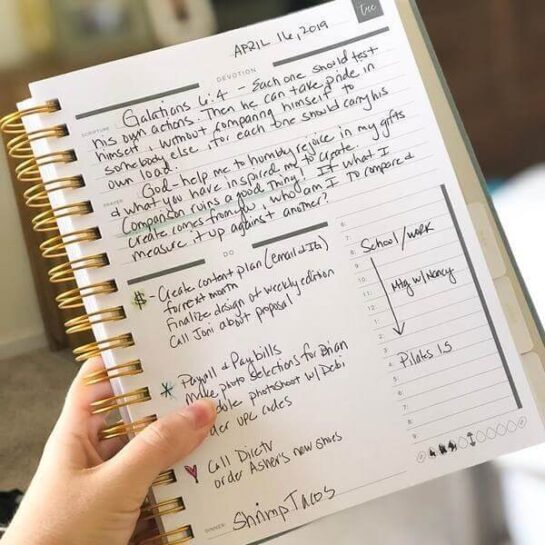 tue
APRIL 16, 2019
DEVOTION
SCRIPTURE
Galatians 6:4 - Each one should test
his own actions. Then he can take pride in
himself, without comparing himself to
somebody else, for each one should carry his
own load.
PRAYER
God - help me to humbly rejoice in my gifts
& what you have inspired me to create.
Comparison ruins a good thing! If what I
create comes from you, who am I to compare &
measure it up against another?
DO
$ - Create content plan (email & IG)
for next month
Finalize design of weekly edition
Call Joni about proposal
* Payroll & Pay bills
Make photo selections for Brian
photoshoot w/ Debi
upc codes
Call Directv
order Asher's new shoes
DINNER
Shrimp Tacos
School/work
Mtg w/ Nancy
Pilates